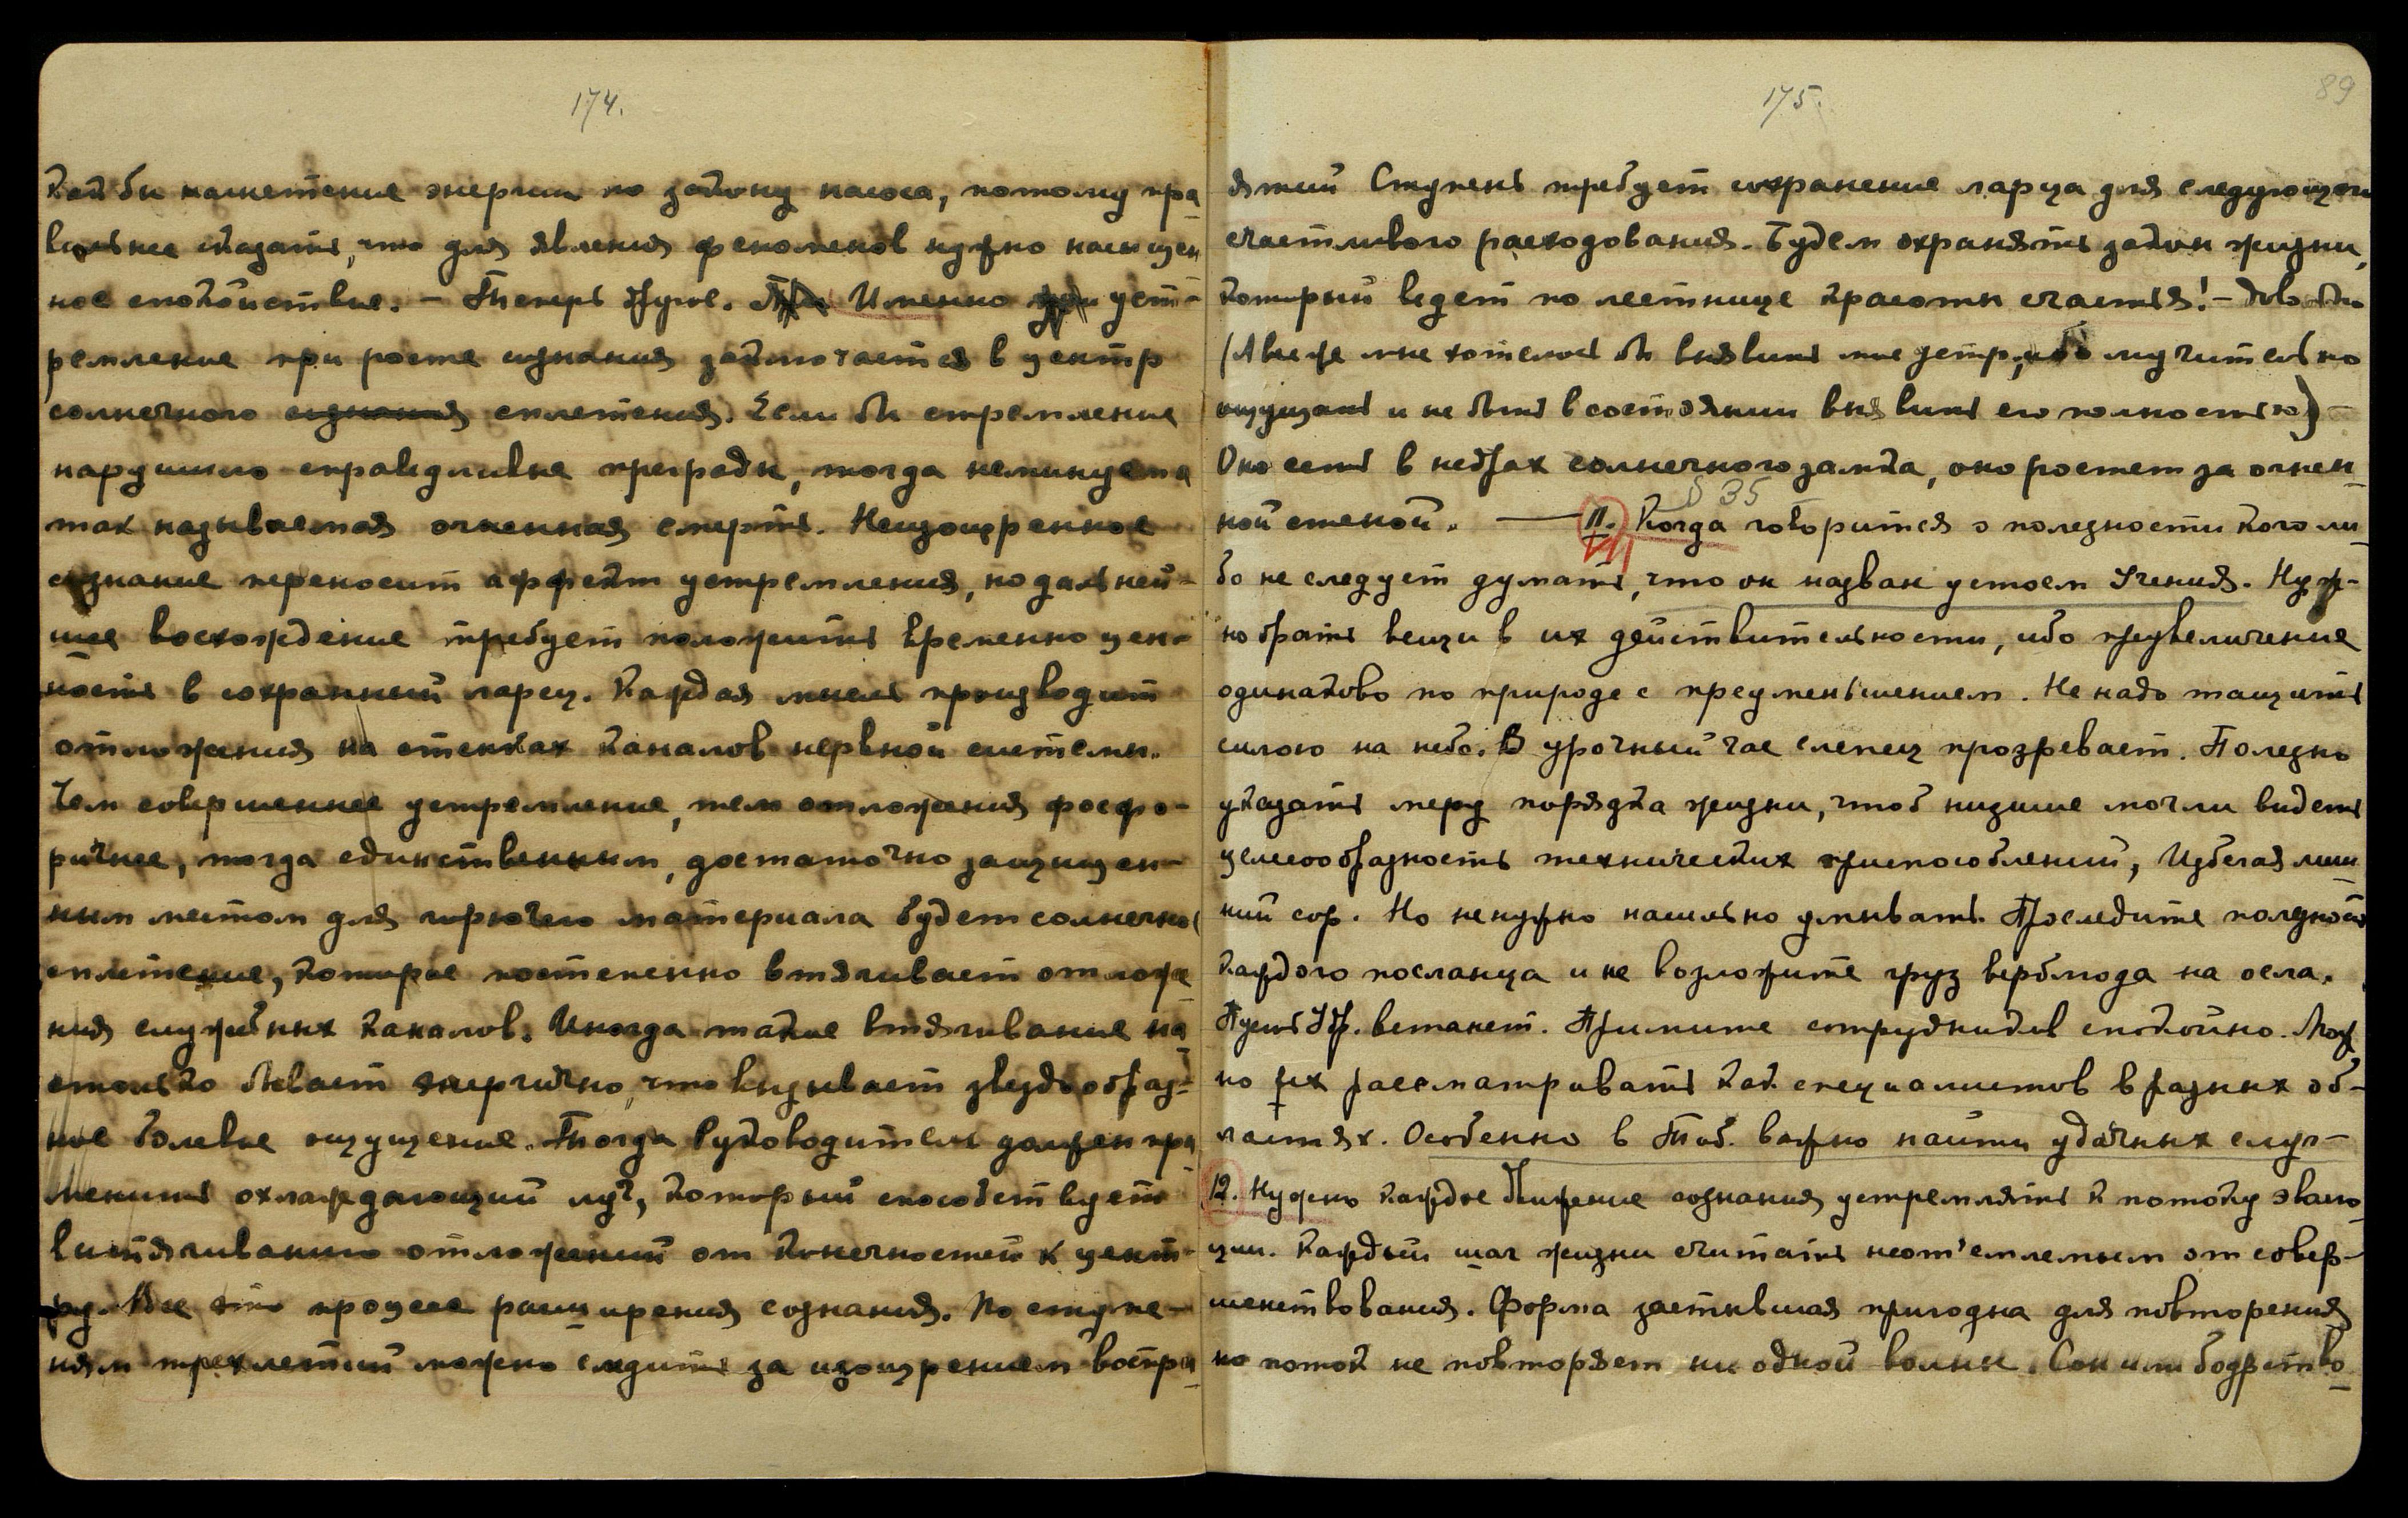 174.
как бы нагнетение энергии по закону насоса, потому пра-
вильнее сказать, что для явления феноменов нужно насыщен
ное спокойствие. – Теперь другое. Именно уст-
ремление при росте сознания заключается в центр
солнечного сознания сплетения. Если бы стремление
нарушило справедливые преграды, тогда неминуема
так называемая огненная смерть. Неизощренное
сознание переносит аффект устремления, но дальней-
шее восхождение требует положить временно цен-
ность в сохранный ларец. Каждая мысль производит
отложения на стенках каналов нервной системы.
Чем совершеннее устремление, тем отложения фосфо-
ричнее, тогда единственным, достаточно защищен-
ным местом для горючего материала будет солнечное
сплетение, которое постепенно втягивает отложе-
ния служебных каналов. Иногда такое втягивание на-
столько бывает энергично, что вызывает звездообраз-
ное болевое ощущение. Тогда Руководитель должен при-
менить охлаждающий луч, который способствует
вытягиванию отложений от конечностей к цент-
ру. Все это процесс расширения сознания. По ступе-
ням трехлетий можно следить за изощрением воспри-
175.
89
ятий Ступень требует сохранение ларца для следующего
счастливого расходования. Будем охранять закон жизни,
который ведет по лестнице красоты счастья! – Довольно
(А все же мне хотелось бы выявить мне центр, ибо мучительно
ощущать и не быть в состоянии выявить его полностью) –
Оно есть в недрах солнечного замка, оно растет за огнен-
ной стеной. —
§ 35
11. Когда говорится о полезности кого ли-
бо не следует думать, что он назван устоем Учения. Нуж-
но брать вещи в их действительности, ибо преувеличение
одинаково по природе с преуменьшением. Не надо тащить
силою на небо. В урочный час слепец прозревает. Полезно
указать меру порядка жизни, чтоб низшие могли видеть
целесообразность технических приспособлений, Избегая лиш-
ний сор. Но ненужно насильно умывать. Последите полезность
каждого посланца и не возложите груз верблюда на осла.
Пусть Удр. встанет. Примите сотрудников спокойно. Мож
но их рассматривать как специалистов в разных об-
ластях. Особенно в Тиб. важно найти удачных случ–
12. Нужно каждое движение сознания устремлять к потоку эволю-
ции. Каждый шаг жизни считать неот'емлемым от совер-
шенствования. Форма застывшая пригодна для повторения
но поток не повторяет ни одной волны. Сон или бодрство-